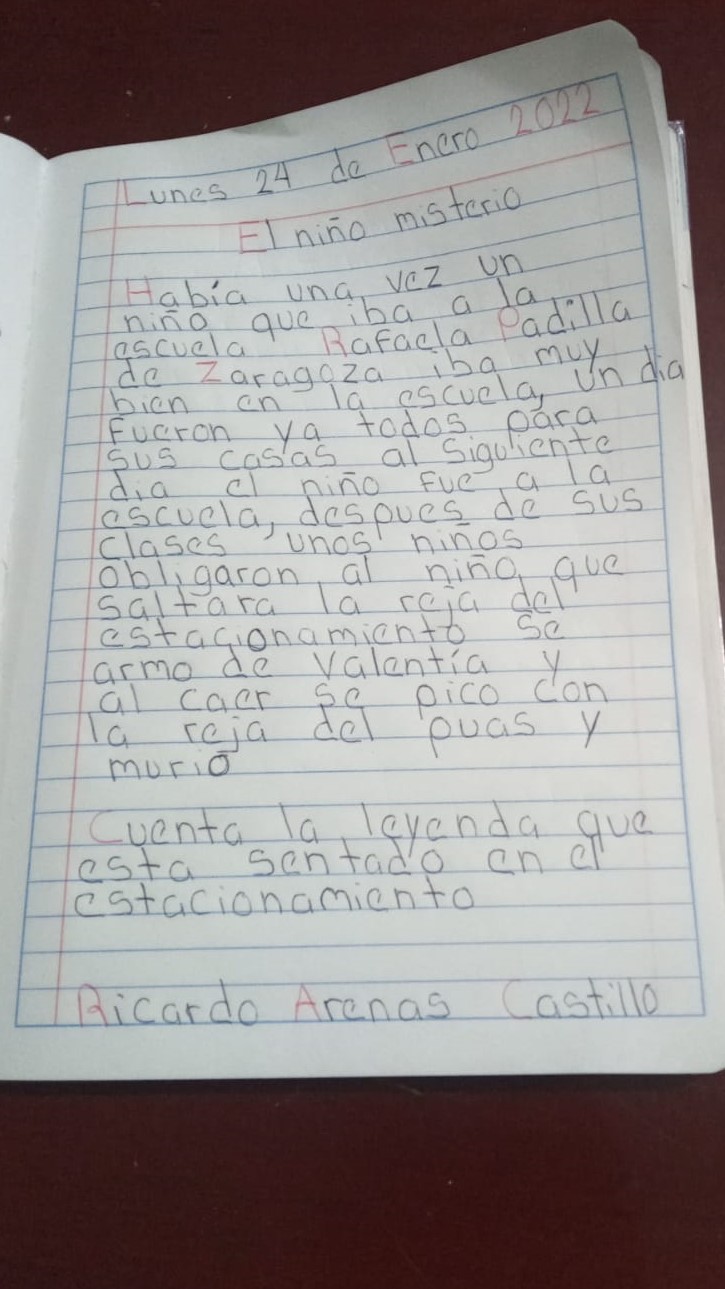 Lunes 24 de Enero 2022
El niño misterio
Había una vez un
niño que iba a la
escuela Rafaela Padilla
de Zaragoza iba muy
bien en la escuela, un dia
fueron ya todos para
sus casas al siguiente
dia el niño fue a la
escuela, despues de sus
clases unos niños
obligaron al niño que
saltara la reja del
estacionamiento se
armo de valentía y
al caer se pico con
la reja del puas y
murio
Cuenta la leyenda que
esta sentado en el
estacionamiento
Ricardo Arenas Castillo